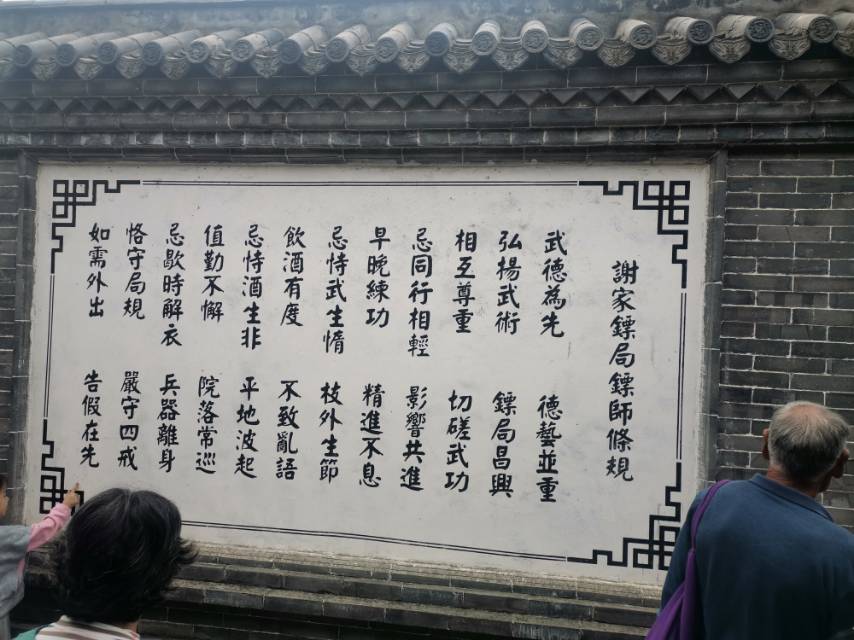 謝家鏢局鏢師條規
武德為先 德藝並重
弘揚武術 鏢局昌興
相互尊重 切磋武功
忌同行相輕 影響共進
早晚練功 精進不息
忌恃武生惰 枝外生節
飲酒有度 不致亂語
忌恃酒生非 平地波起
值勤不懈 院落常巡
忌歇時解衣 兵器離身
恪守局規 嚴守四戒
如需外出 告假在先